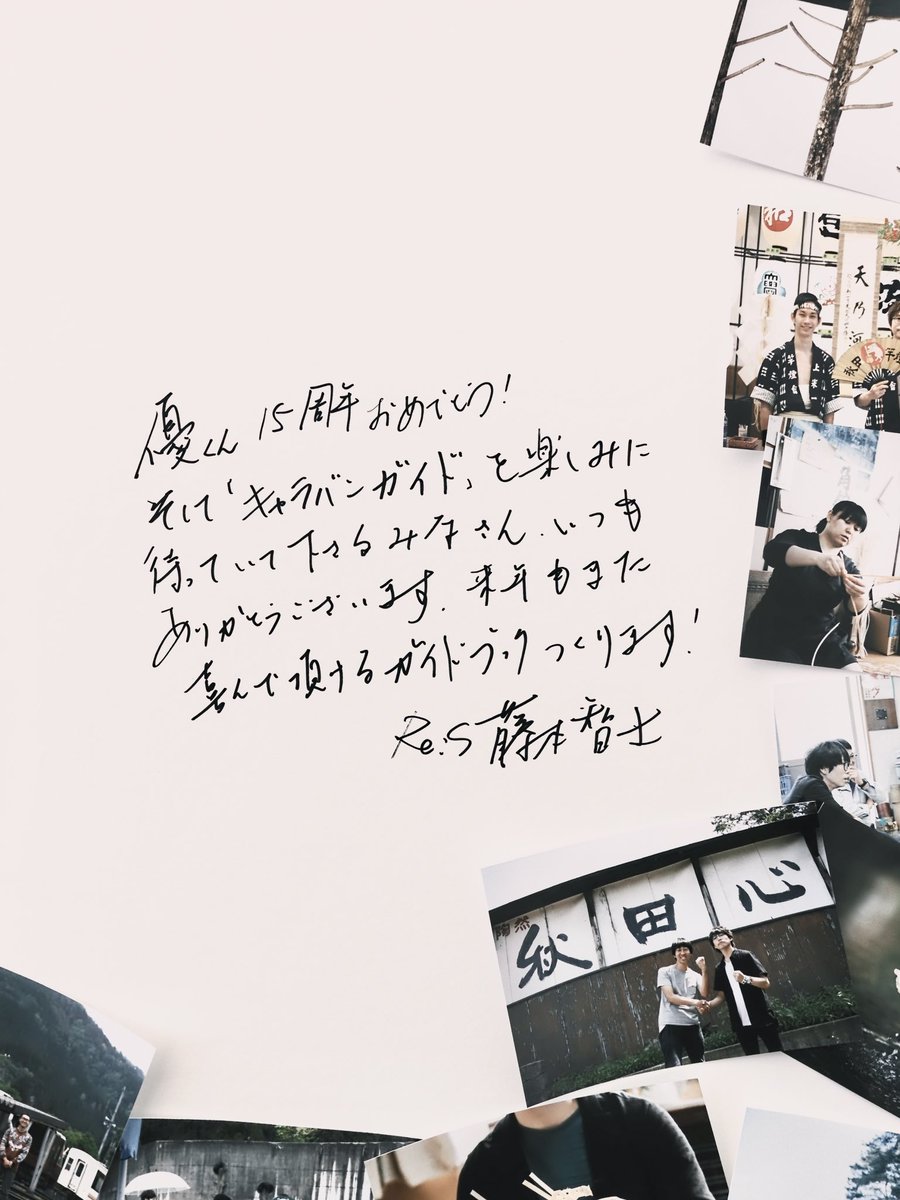 優くん 15周年おめでとう！
そして「キャラバンガイド」を楽しみに
待っていて下さるみなさん、いつも
ありがとうございます。来年もまた
喜んで頂けるガイドブックつくります！
Re:S 藤本智士
天乃河
秋田
陶然
秋田心